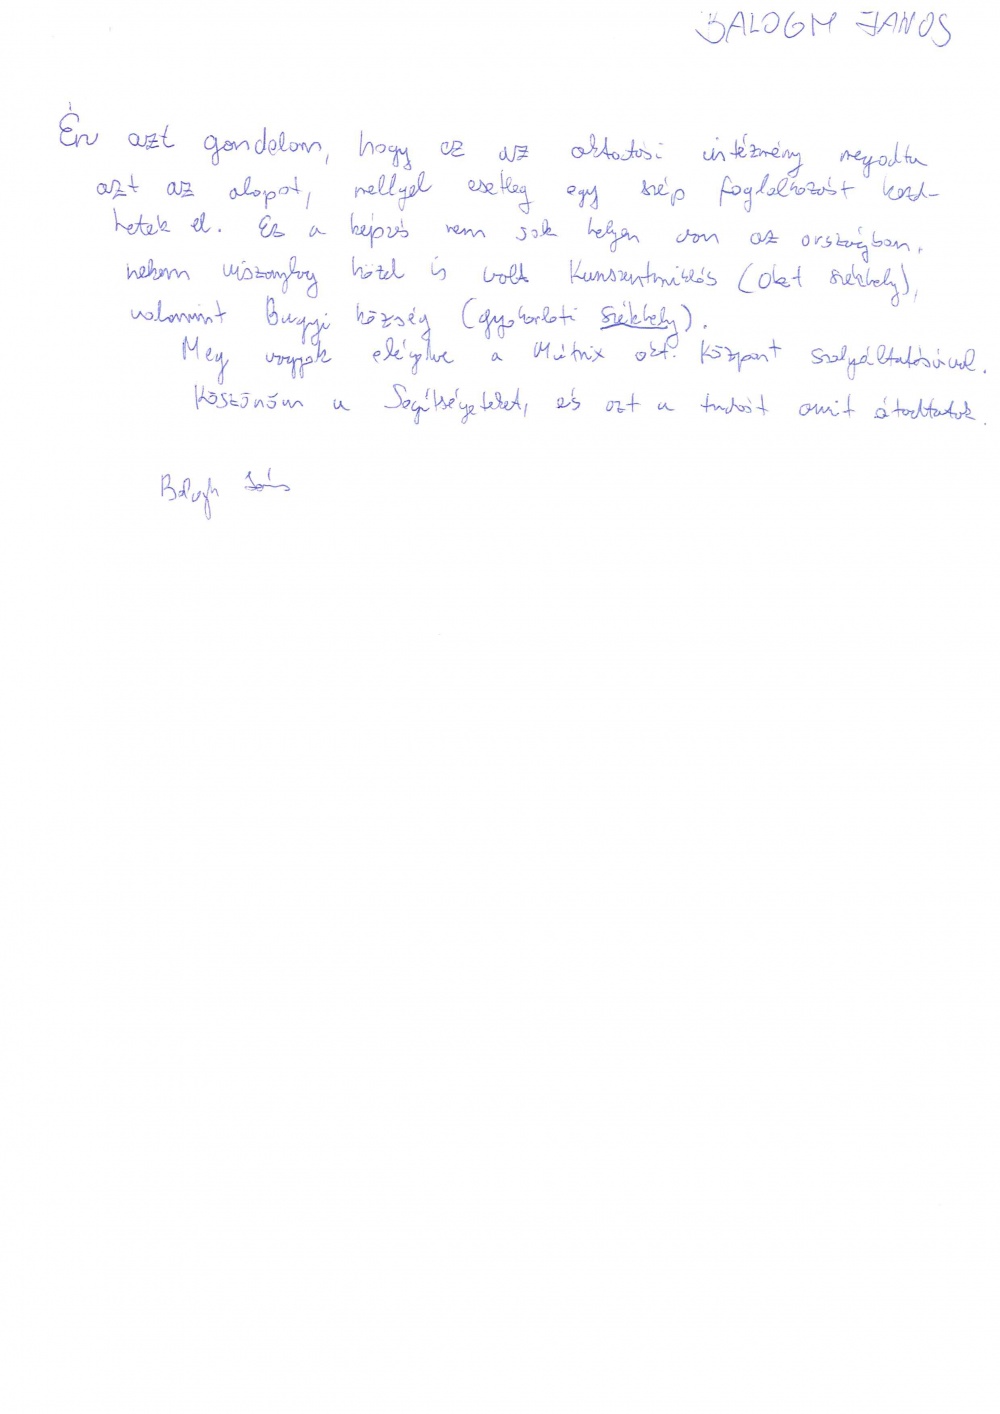 BALOGH JÁNOS
Én azt gondolom, hogy ez az oktatási intézmény megadta
azt az alapot, mellyel esetleg egy szép foglalkozást kezd-
hetek el. Ez a képzés nem sok helyen van az országban,
nekem viszonylag közel is volt Kunszentmiklós (Okt székhely),
valamint Bugyi község (gyakorlati székhely).
Meg vagyok elégedve a Mátrix okt. központ szolgáltatásával.
Köszönöm a Segítségeteket, és azt a tudást amit átadtatok.
Balogh János